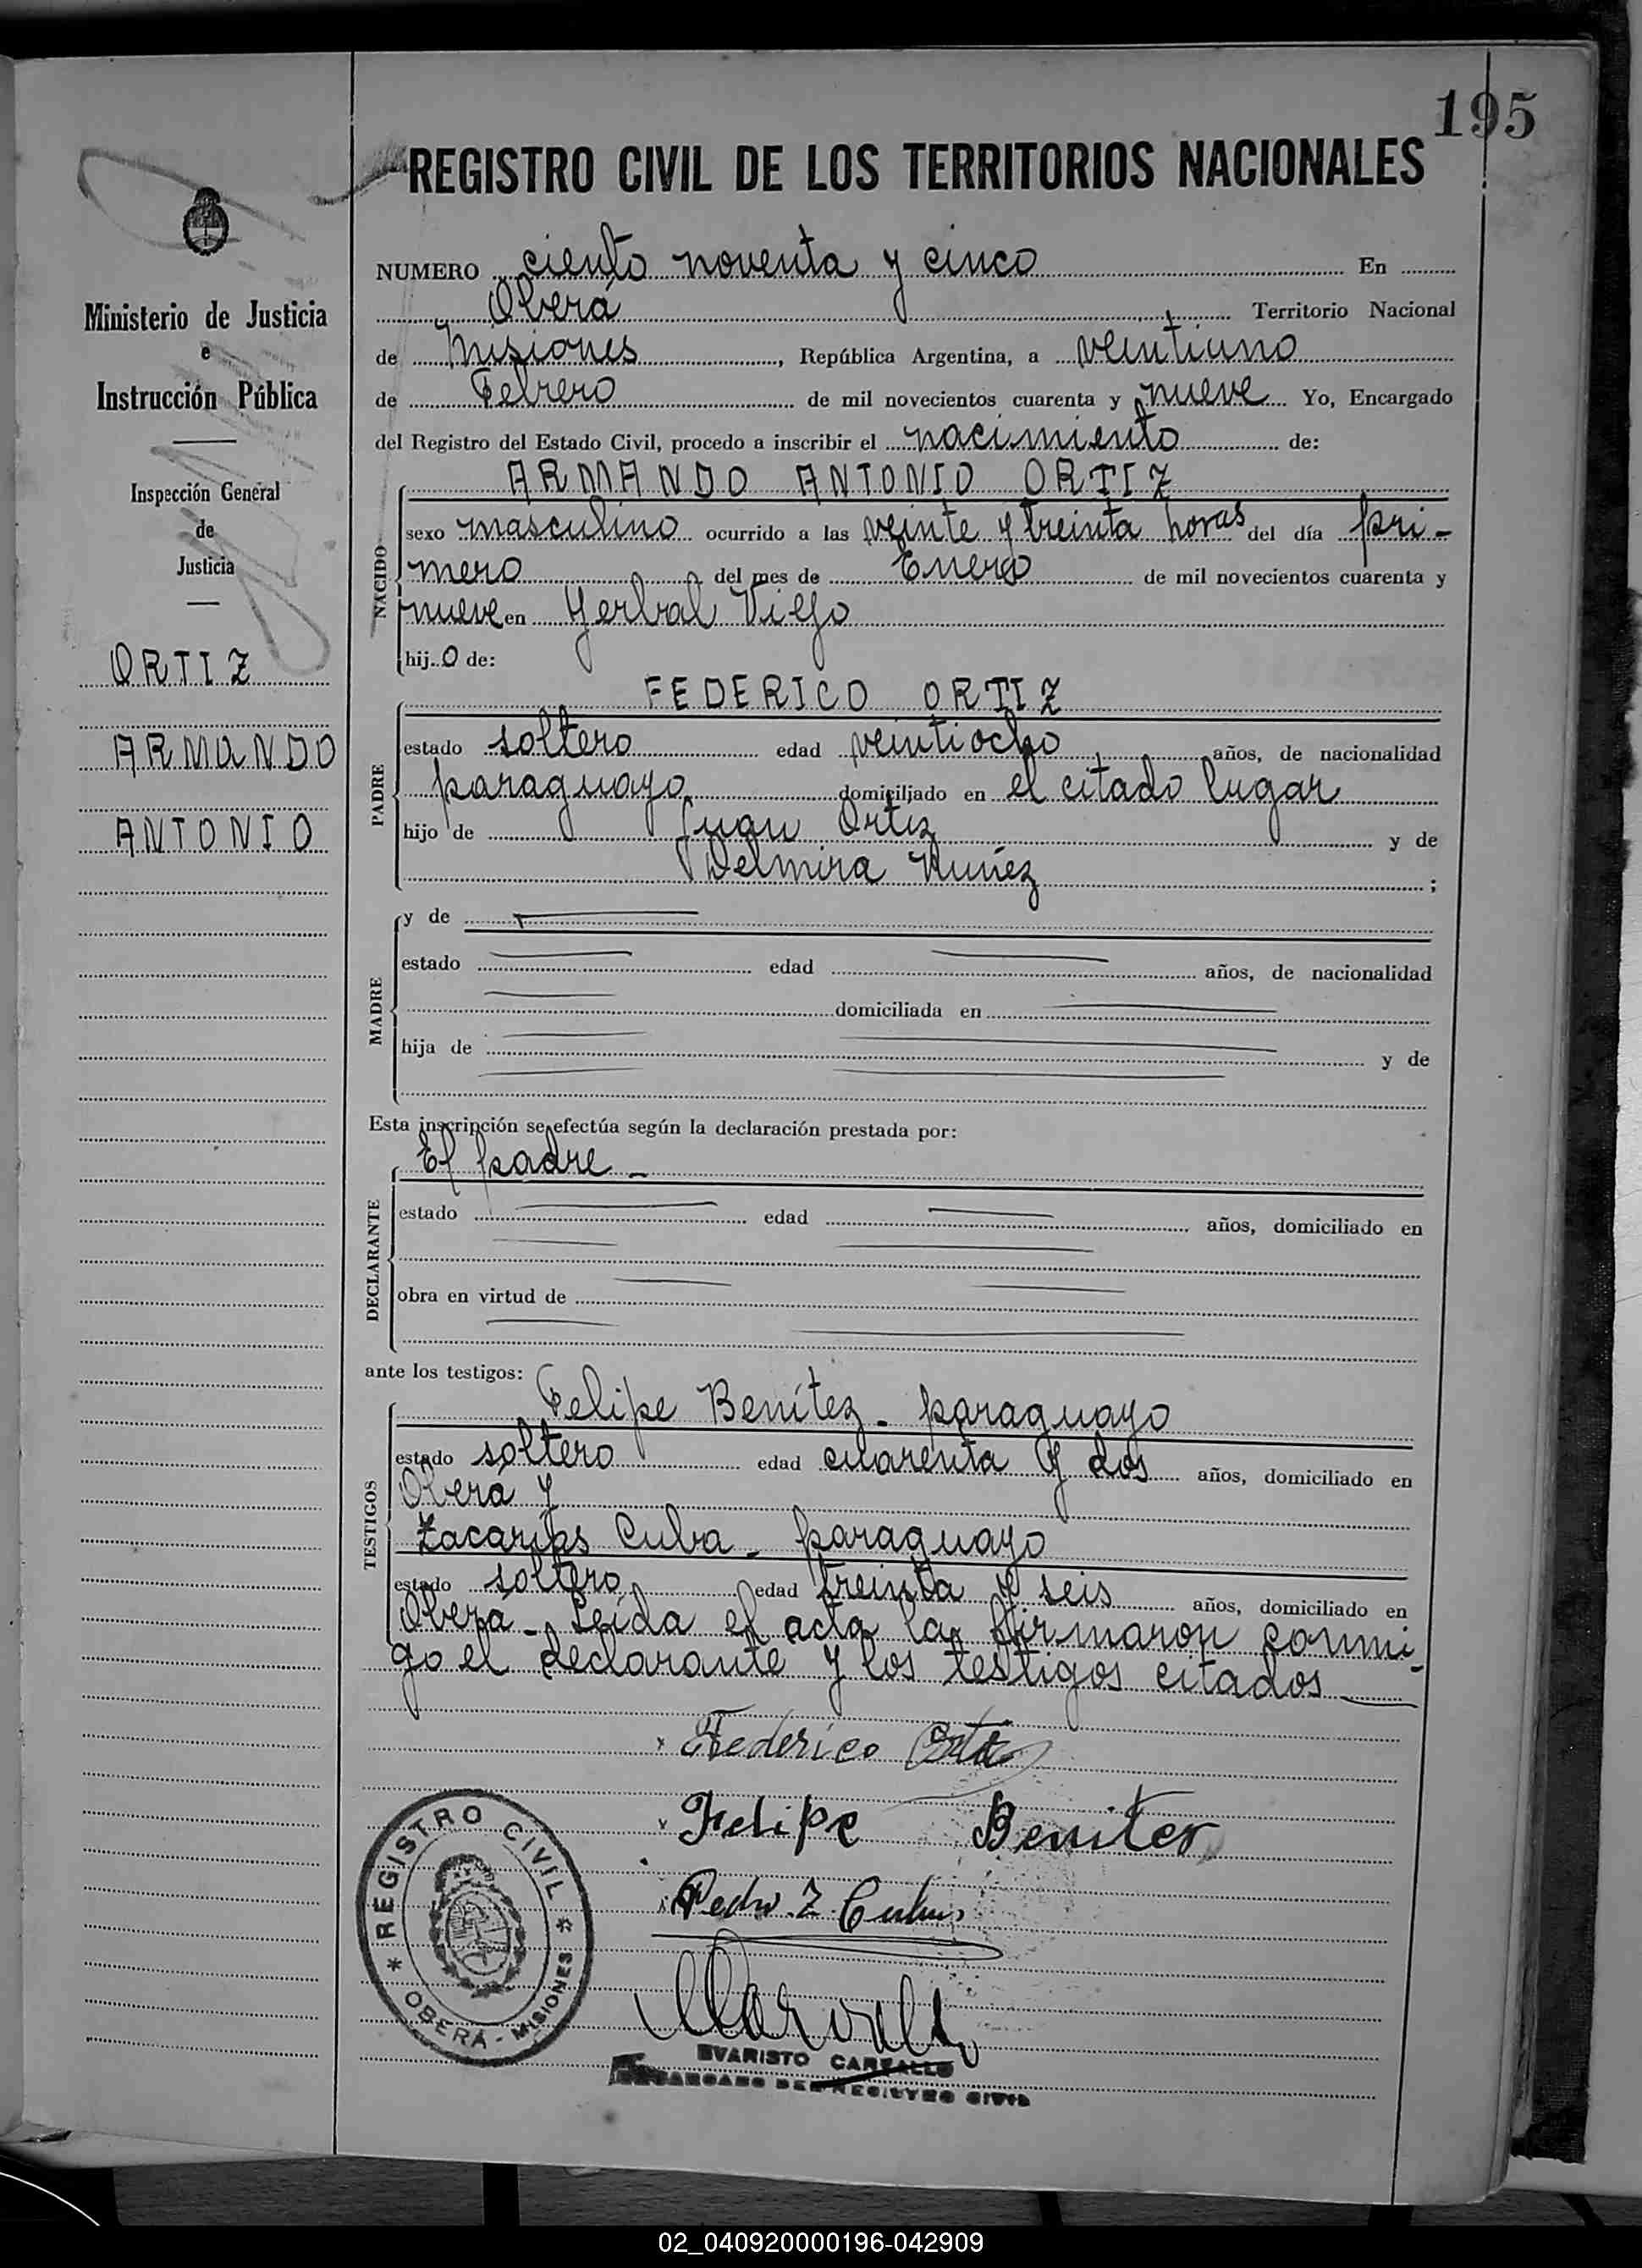 195
REGISTRO CIVIL DE LOS TERRITORIOS NACIONALES
Ministerio de Justicia
e
Instrucción Pública
Inspección General
de
Justicia
ORTIZ
ARMANDO
ANTONIO
NUMERO ciento noventa y cinco En
Oberá Territorio Nacional
de Misiones, República Argentina, a veintiuno
de Febrero de mil novecientos cuarenta y nueve Yo, Encargado
del Registro del Estado Civil, procedo a inscribir el nacimiento de:
ARMANDO ANTONIO ORTIZ
NACIDO
sexo masculino ocurrido a las veinte y treinta horas del día pri-
mero del mes de Enero de mil novecientos cuarenta y
nueve en Yerbal Viejo
hijo de:
FEDERICO ORTIZ
PADRE
estado soltero edad veintiocho años, de nacionalidad
paraguayo domiciliado en el citado lugar
hijo de Juan Ortiz y de
Delmira Nuñez ;
MADRE
y de
estado edad años, de nacionalidad
domiciliada en
hija de y de
Esta inscripción se efectúa según la declaración prestada por:
El padre -
DECLARANTE
estado edad años, domiciliado en
obra en virtud de
ante los testigos:
Felipe Benítez - paraguayo
TESTIGOS
estado soltero edad cuarenta y dos años, domiciliado en
Oberá y
Zacarías Cuba - paraguayo
estado soltero edad treinta y seis años, domiciliado en
Oberá - Leída el acta la firmaron conmi-
go el declarante y los testigos citados
Federico Ortiz
Felipe Benitez
Pedro Z. Cuba
REGISTRO CIVIL
OBERÁ - MISIONES
EVARISTO CARVALLO
ENCARGADO DEL REGISTRO CIVIL
02_040920000196-042909